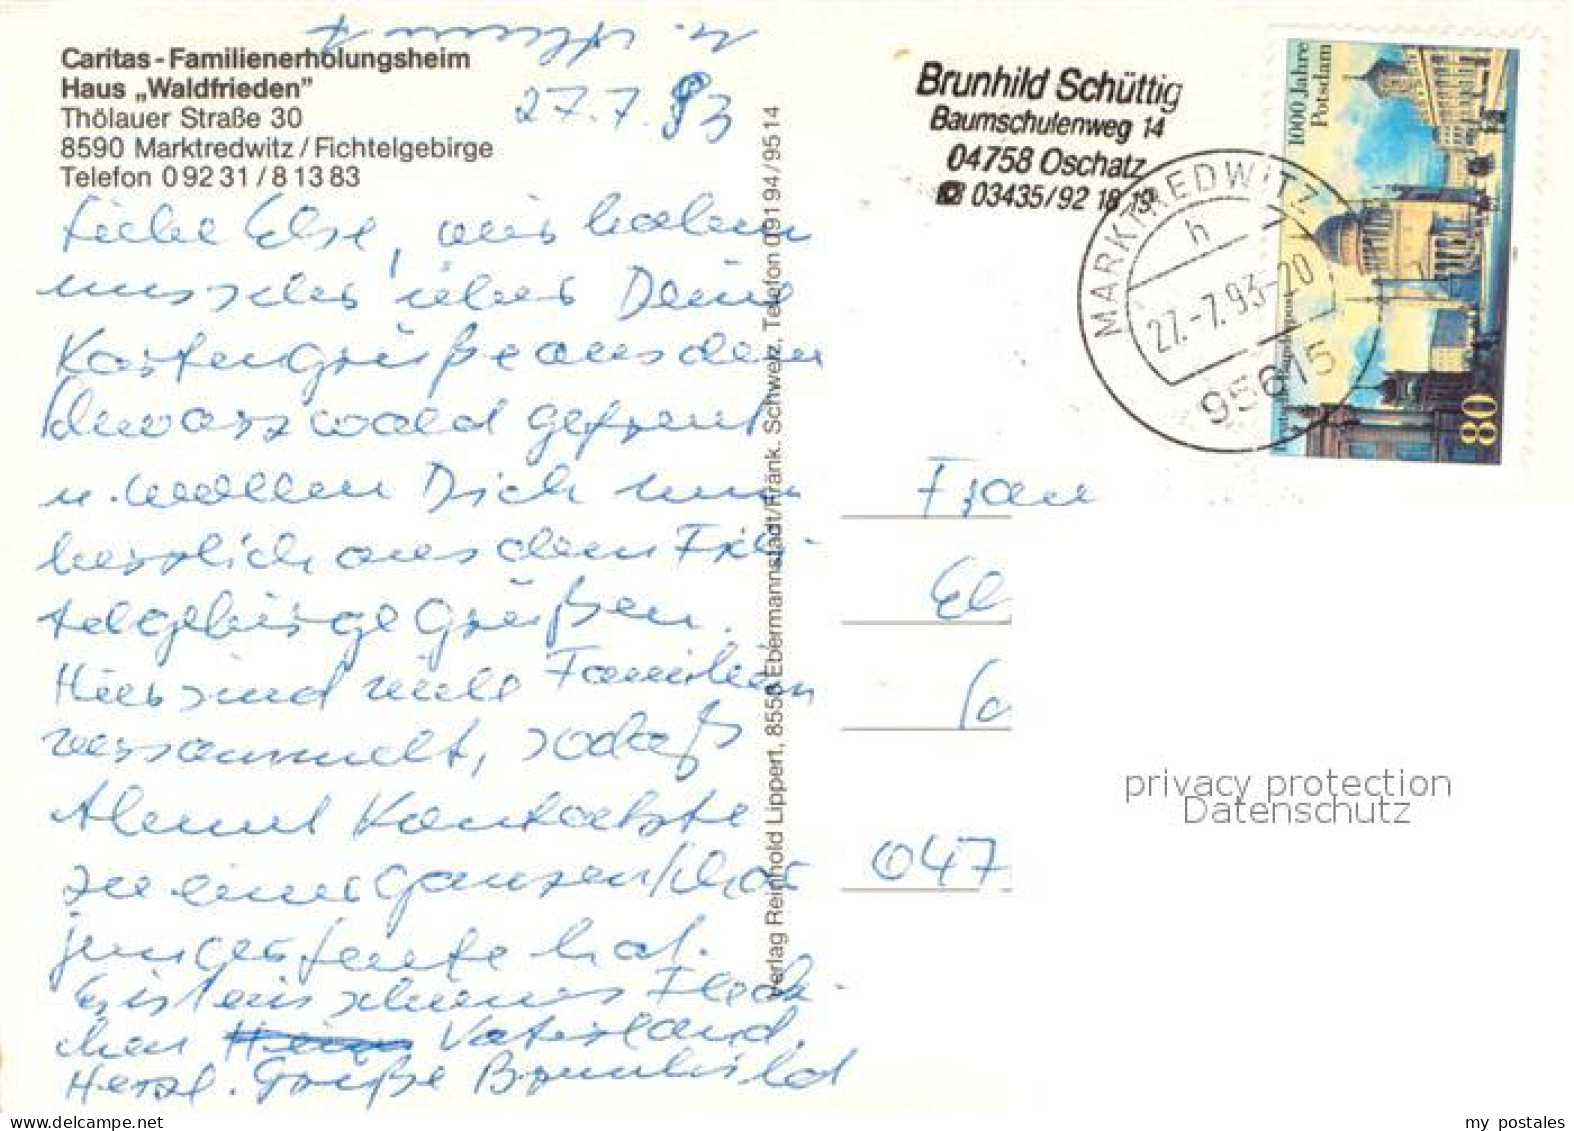 u. Almut
Caritas-Familienerholungsheim
Haus „Waldfrieden”
Thölauer Straße 30
8590 Marktredwitz/Fichtelgebirge
Telefon 09231/81383
27.7.93
Liebe Else, wir haben
uns sehr über Deine
Kartengrüße aus dem
Schwarzwald gefreut
u. wollen Dich nun
herzlich aus dem Fich-
telgebirge grüßen.
Hier sind viele Familien
versammelt, sodaß
Almut Kontakte
zu einer ganzen Schar
junger Leute hat.
Es ist ein schönes Fleck-
chen Vaterland.
Herzl. Grüße Brunhild
Verlag Reinhold Lippert, 8553 Ebermannstadt/Fränk. Schweiz, Telefon 09194/9514
Brunhild Schüttig
Baumschulenweg 14
04758 Oschatz
☎ 03435/92 18 19
MARKTREDWITZ 1
h
27.-7.93-20
95615
1000 Jahre
Potsdam
Deutsche Bundespost
80
Frau
El
047
privacy protection
Datenschutz
my postales